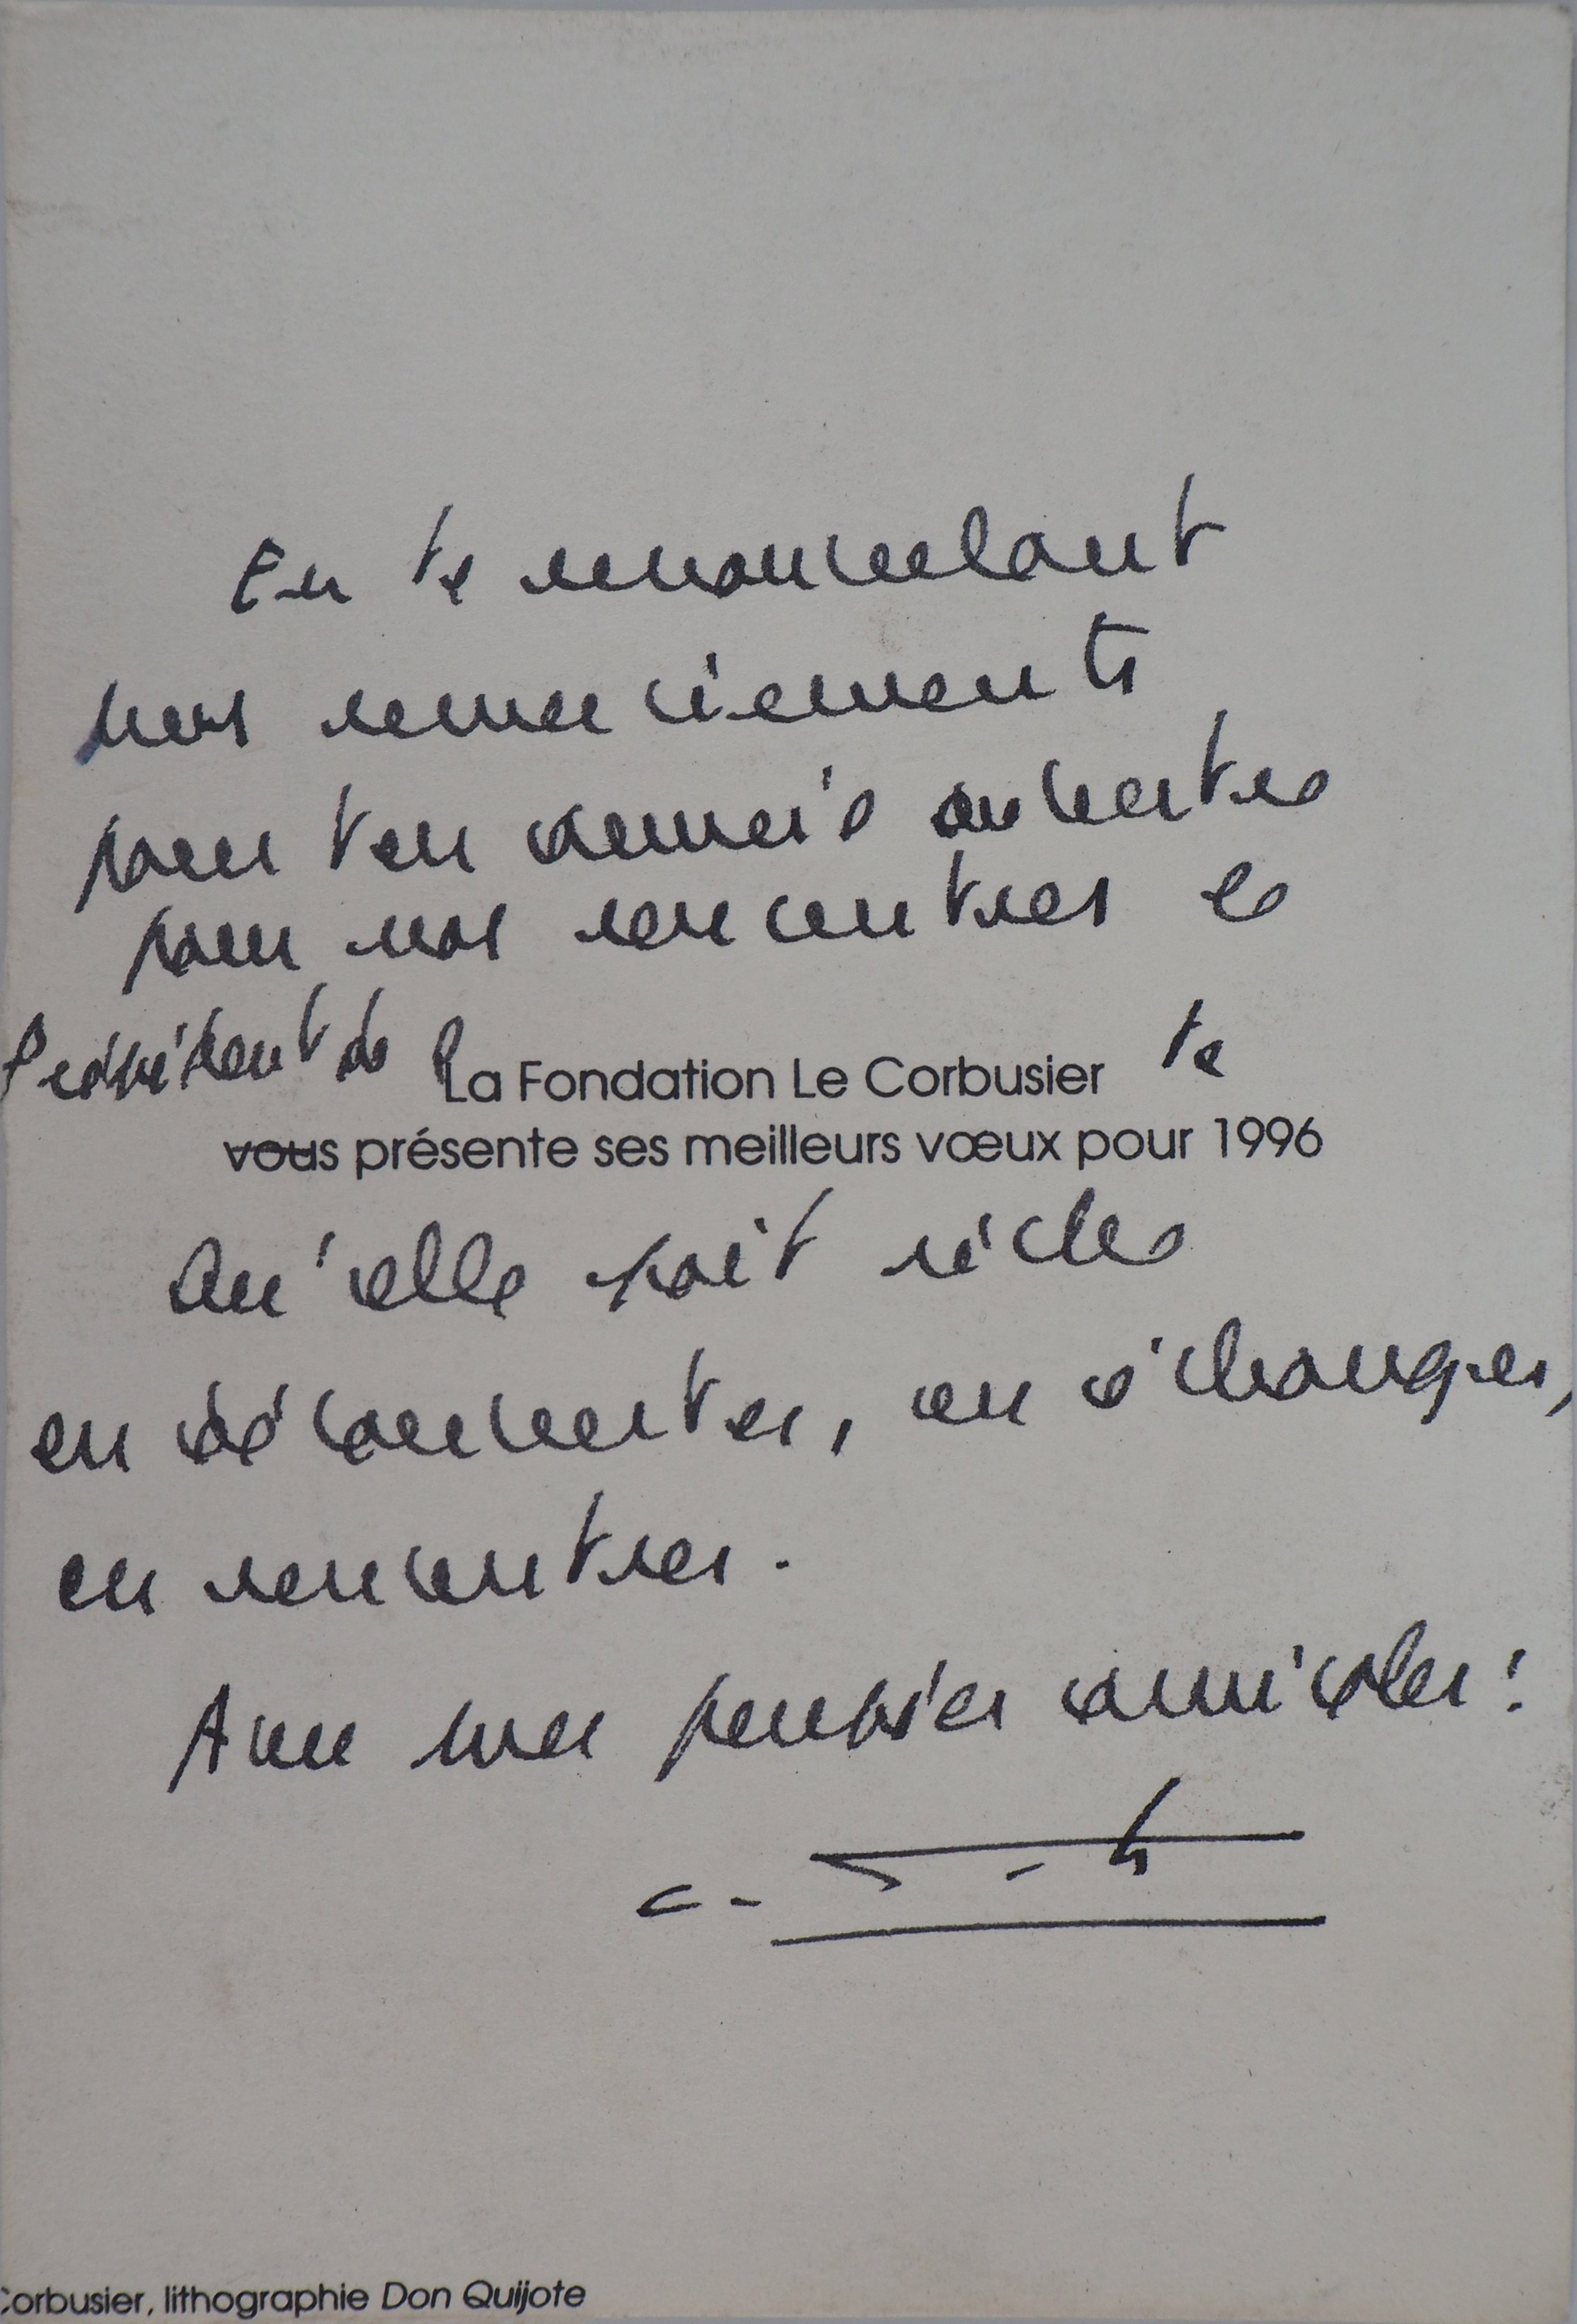 En te renouvelant
mes remerciements
pour ton amitié ouverte
pour nos rencontres le
Président de la Fondation Le Corbusier te
vous présente ses meilleurs vœux pour 1996
Qu'elle soit riche
en découvertes, en échanges,
en rencontres.
Avec mes pensées amicales :
Corbusier, lithographie Don Quijote